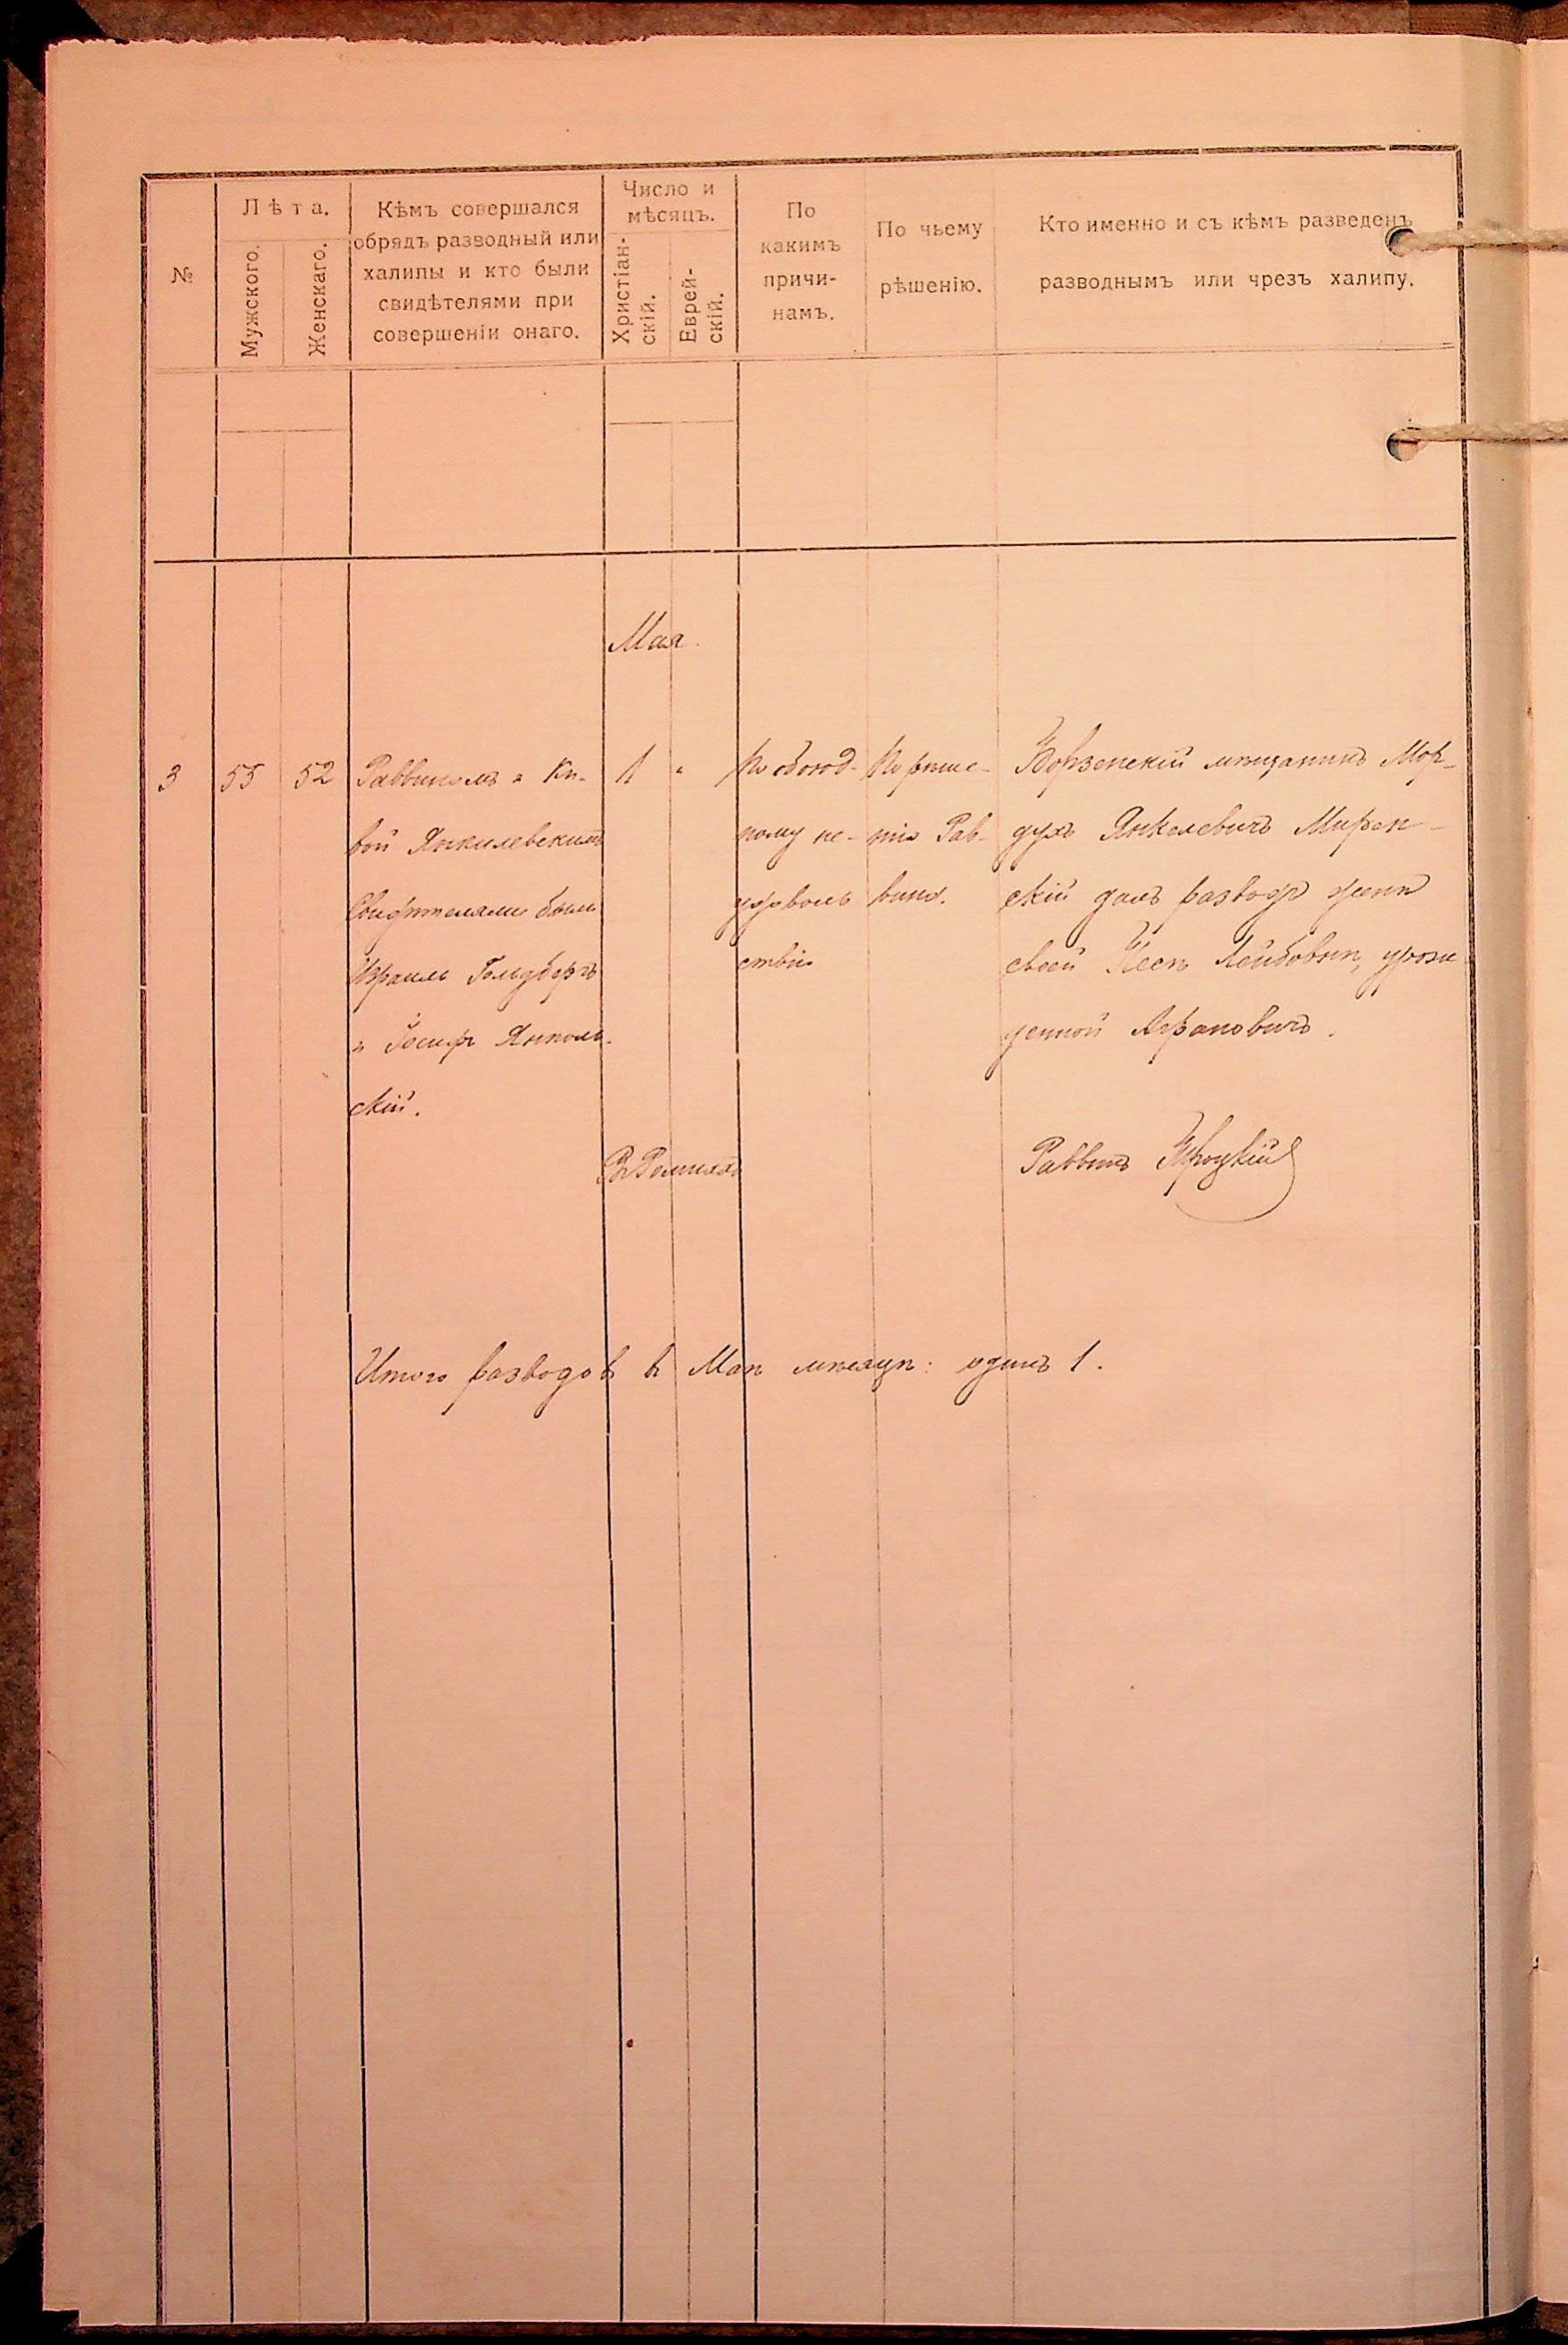 №
Лѣта.
Мужского.
Женскаго.
Кѣмъ совершался
обрядъ разводный или
халипы и кто были
свидѣтелями при
совершеніи онаго.
Число и
мѣсяцъ.
Христіан-
скій.
Еврей-
скій.
По
какимъ
причи-
намъ.
По чьему
рѣшенію.
Кто именно и съ кѣмъ разведенъ
разводнымъ или чрезъ халипу.
Мая
3
55
52
Раввиномъ
вой Янкилевскимъ
Свидѣтелями были
Израиль Гольдбергъ
и Іосифъ Ямполь-
скій.
1
"
По обоюд-
ному не-
удоволь
ствію
По рѣше-
нію Рав-
вина.
Борзенскій мѣщанинъ Мор-
духъ Янкелевичъ Мирен-
скій далъ разводъ женѣ
своей Лейбовнѣ, урож
денной
Въ Ромнахъ
Раввинъ
Итого разводовъ въ Маѣ мѣсяцѣ: одинъ 1.